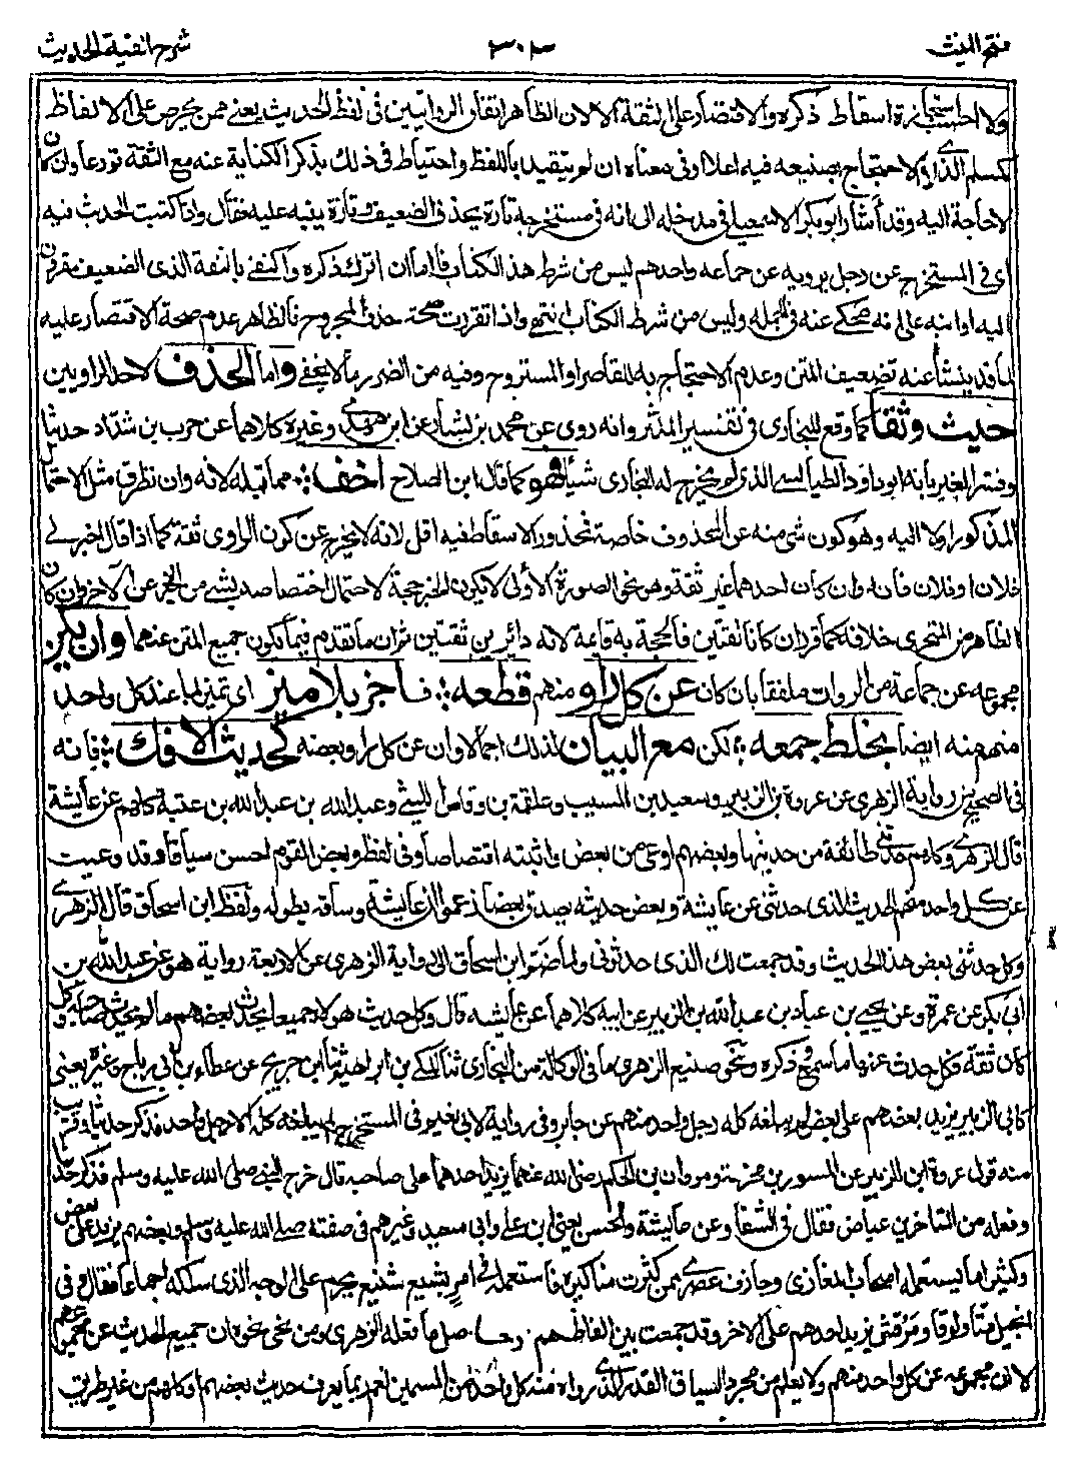 فتح المغيث ٣٠٣ شرح الفية الحديث
اسقاط ذكره والاقتصار على الثقة الا لان الظاهر اتفاق الروايتين فى لفظ الحديث يعنى ممن يحرص على الالفاظ
كمسلم الذى الاحتجاج بصنيعه فيه اعلا وفى معناه ان لم يتقيد باللفظ واحتياط فى ذلك بذكر الكناية عنه مع الثقة تورعا وان كان
لا حاجة اليه وقد أشار ابو بكر الاسمعيلى فى مدخله الى انه فى مستخرجه تارة يحذف الضعيف وتارة ينبه عليه فقال واذا كتبت الحديث فيه
اى فى المستخرج عن رجل يرويه عن جماعه واحدهم ليس من شرط هذا الكتاب فاما أن اترك ذكره واكتفى بالثقة الذى الضعيف مقرون
اليه او انبه على انه محكى عنه فى الجمله وليس من شرط الكتاب انتهى واذا تقررت صحة حذف المجروح فالظاهر عدم صحة الاقتصار عليه
لما قد ينشأ عنه تضعيف المتن وعدم الاحتجاج به للقاصر او المستروح وفيه من الضرر ما لا يخفى واما الحذف لاحد الراويين
حيث وثقا كما وقع للبخارى فى تفسير المدثر وانه روى عن محمد بن بشار عن ابن مهدى وغيره كلاهما عن حرب بن شداد حدثنا
وفسر الغير بأنه ابو داود الطيالسى الذى لم يخرج له البخارى شيئا فهو كما قال ابن الصلاح اخف مما قبله لانه وان تطرق مثل الاحتمال
المذكور اولا اليه وهو كون شىء منه عن المحذوف خاصة فمحذور الاسقاط فيه اقل لانه لا يخرج عن كون الراوى ثقة كما اذا قال اخبرنى
فلان او فلان فانه وان كان احدهما غير ثقة وهو نحو الصورة الأولى لا يكون الخبر حجة لاحتمال اختصاصه بشىء من الخبر عن الآخر وان كان
الظاهر من التحرى خلافه كما قرر ان كانا ثقتين فالحجة به قائمة لانه دائر بين ثقتين ثم ان ما تقدم فيما يكون جميع المتن عنهما وان يكن
مجموعه عن جماعة من الروات ملفقا بان كان عن كل راو منهم قطعة فاجز بلا ميز اى تمييز لما عند كل واحد
منهم منه ايضا بخلط جمعه لكن مع البيان لذلك اجمالا وان عن كل راو بعضه كحديث الافك فانه
فى الصحيح من رواية الزهرى عن عروة بن الزبير وسعيد بن المسيب وعلقمة بن وقاص الليثى وعبد الله بن عبد الله بن عتبة كلهم عن عايشة
قال الزهرى وكلهم حدثنى طائفة من حديثها وبعضهم اوعى من بعض واثبته اقتصاصا وفى لفظ وبعض القوم احسن سياقا وقد وعيت
عن كل واحد منهم الحديث الذى حدثنى عن عايشة وبعض حديثه يصدق بعضا زعموا ان عايشة وساقه بطوله ولفظ ابن اسحاق قال الزهرى
وكل حدثنى بعض هذا الحديث وقد جمعت لك الذى حدثونى ولما ضم ابن اسحاق الى رواية الزهرى عن الاربعة رواية هو عن عبد الله بن
ابى بكر عن عمرة وعن يحيى بن عباد بن عبد الله بن الزبير عن ابيه كلاهما عن عايشه قال وكل حديث هؤلاء جميعا يحدث بعضهم ما لم يحدث صاحبه وكل
كان ثقة وكل حدث عنها ما سمع فذكره ونحو صنيع الزهرى ما فى الوكالة من البخارى ثنا المكى بن ابراهيم ثنا ابن جريج عن عطاء بن ابى رباح وغيره يعنى
كابى الزبير يزيد بعضهم على بعض لم يبلغه كله رجل واحد منهم عن جابر وفى رواية لابى نعيم فى المستخرج لم يبلغه كله الا رجل واحد فذكر حديثا وقريب
منه قول عروة ابن الزبير عن المسور بن مخرمة ومروان بن الحكم رضى الله عنهما يزيد احدهما على صاحبه قال خرج النبى صلى الله عليه وسلم فذكر حديثا
وفعله من المتأخرين عياض فقال فى الشفا وعن عايشة والحسن يعنى ابن على وابى سعيد وغيرهم فى صفته صلى الله عليه وسلم وبعضهم يزيد على بعض
وكثيرا ما يستعمله اصحاب المغازى وجازف عصرى ممن كثرت مناكيره فاستعمله فى امر بشيع شنيع محرم على الوجه الذى سلكه اجماعا فقال وفى
انجيل متا ولوقا ومرقش يزيد احدهم على الاخر وقد جمعت بين الفاظهم وحاصل ما فعله الزهرى ومن نحى نحوه ان جميع الحديث عن مجموعهم
لا ان مجموعه عن كل واحد منهم ولا يعلم من مجرد السياق القدر الذى رواه منه كل واحد من المسمين نعم ربما يعرف حديث بعضهم او كلهم من غير طريق